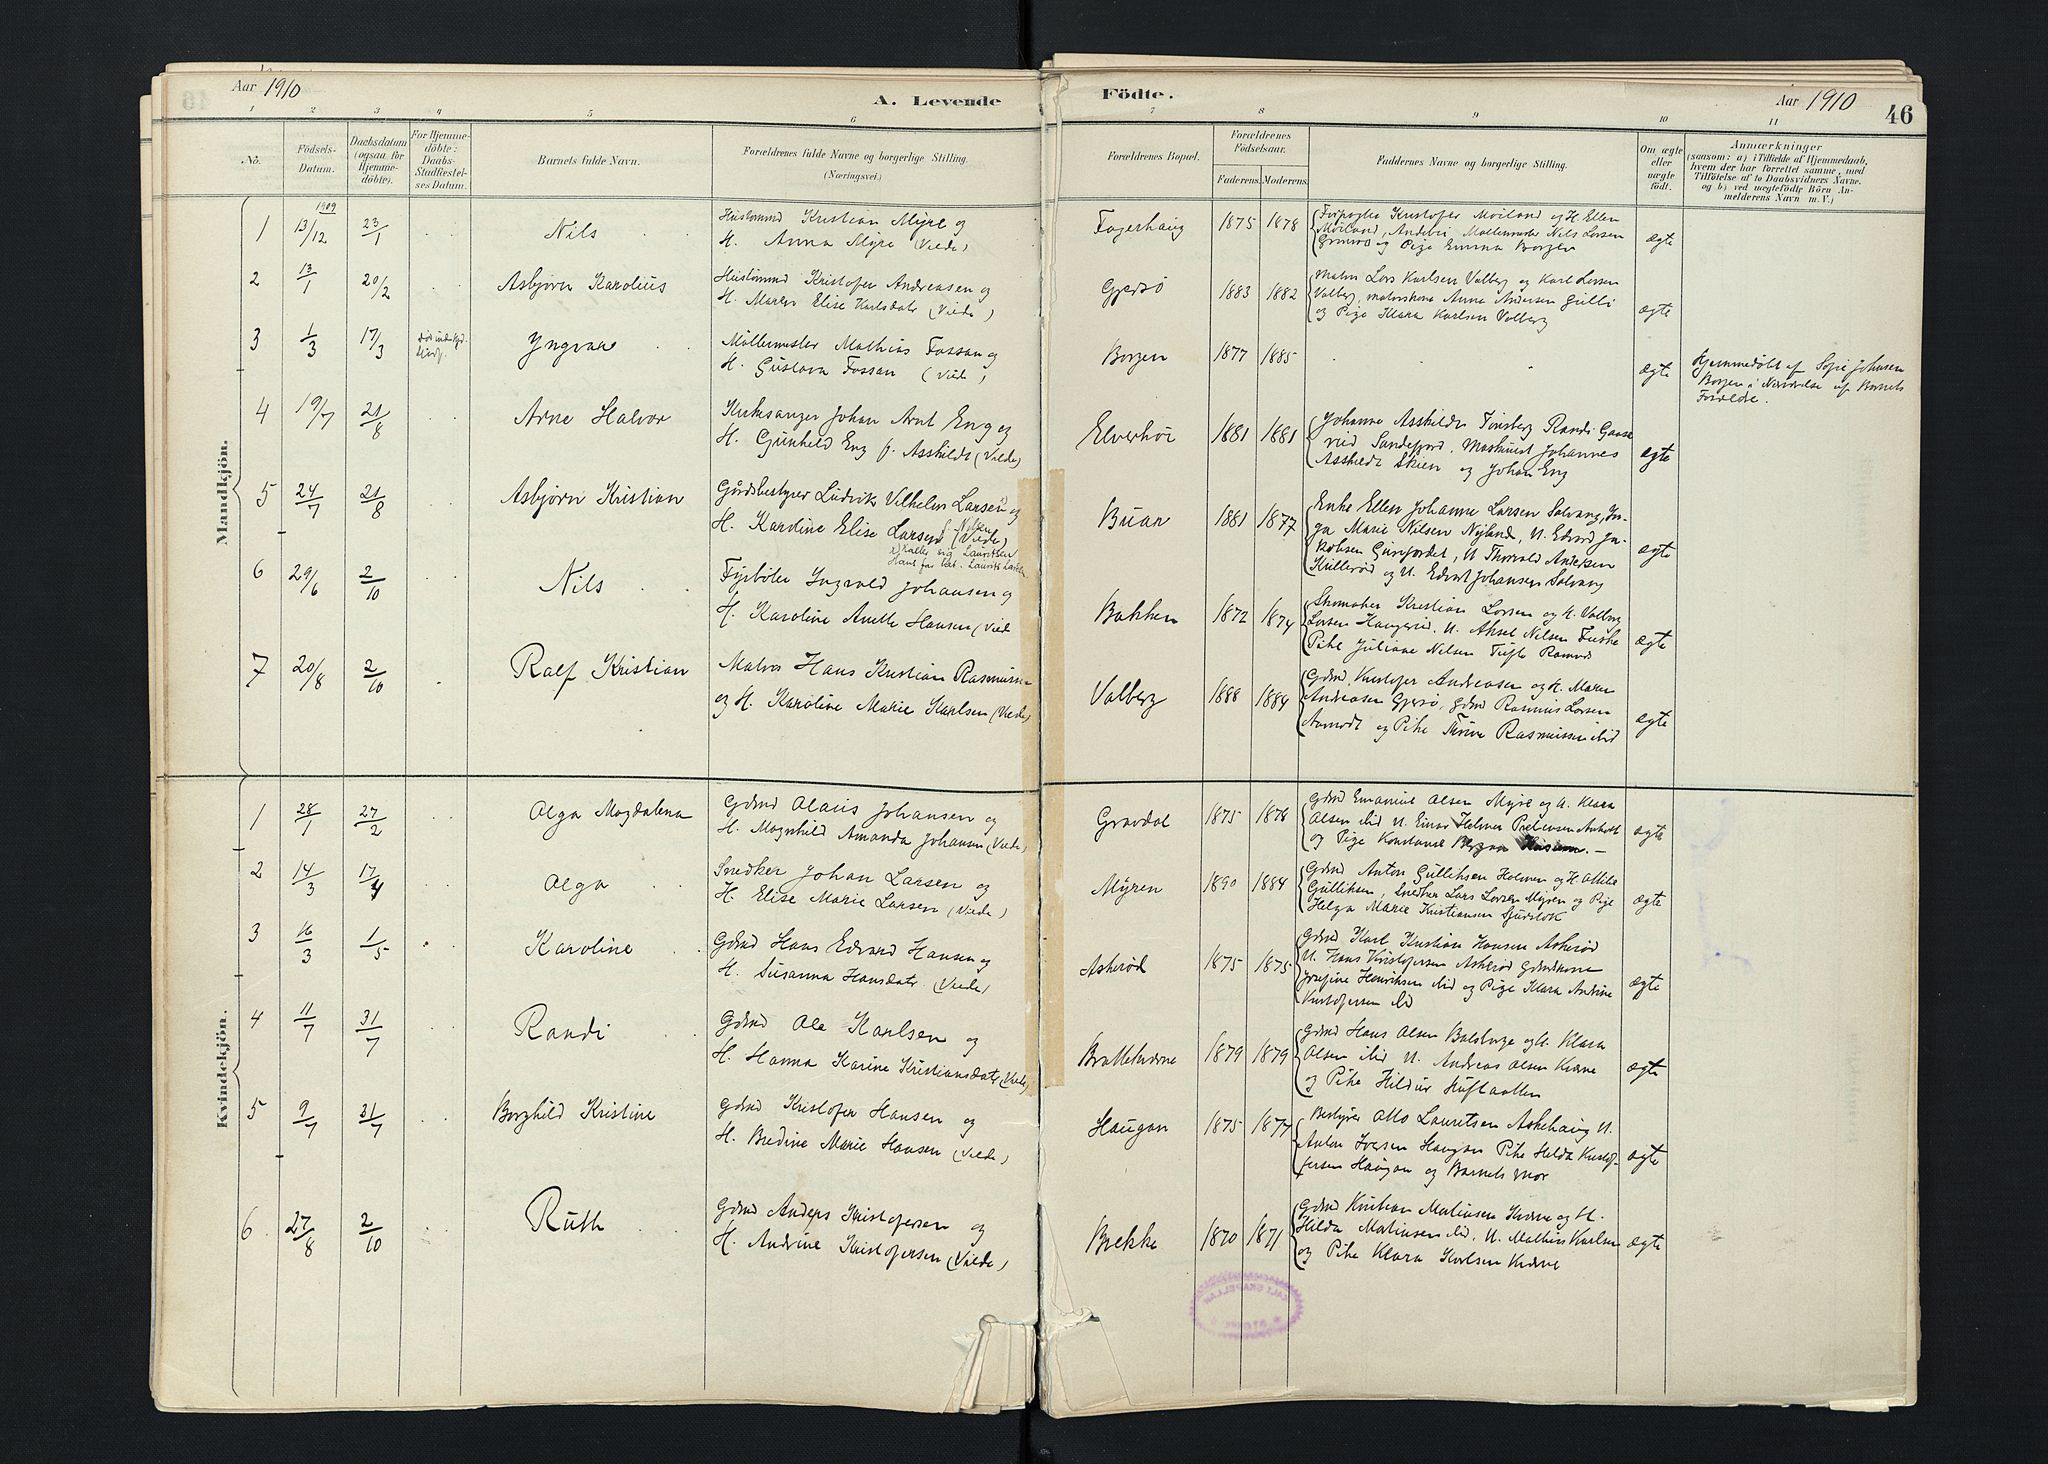 Aar 1910
A. Levende
Fødte.
Aar 1910
46
1 2 3 4 5 6 7 8 9 10 11
No.
Fødsels-
Datum.
Daabsdatum
(ogsaa for
Hjemme-
døbte).
For Hjemme-
døbte:
Daabs-
Stadfæstel-
ses Datum.
Barnets fulde Navn.
Forældrenes fulde Navne og borgerlige Stilling.
(Næringsvei.)
Forældrenes Bopæl.
Forældrenes
Fødselsaar.
Faderens. Moderens.
Faddernes Navne og borgerlige Stilling.
Om ægte
eller
uægte
født.
Anmærkninger
(saasom: a) i Tilfælde af Hjemmedaab,
hvem der har forrettet samme, med
Tilføielse af to Daabsvidners Navne.
og b) ved uægtefødte Børn An-
melderens Navn m. V.)
Mandkjøn.
1 13/12 1909 23/1 Nils
Kristian Myre og
H. Anna Myre (Viede)
Fagerhaug 1875 1878
Kristofer Moiland og H. Ellen
Moiland, Møllemester Nils Larsen
og Pige Emma Borgen
ægte
2 13/1 20/2 Asbjørn Karolius
Kristofer Andreasen og
H. Maren Elise Karlsdatr (Viede)
Gjersø 1883 1882
Matros Lars Karlsen Valberg og Karl Larsen
Valberg, Anna Andersen Gulli
og Pige Klara Karlsen Valberg
ægte
3 1/3 17/3 Yngvar
Møllermester Mathias Fossan og
H. Gustava Fossan (Viede)
Borgen 1877 1885
ægte
Hjemmedøbt af Sofie Johnsen
Borgen i Nærværelse af Barnets
Forældre.
4 19/7 21/8 Arne Halvor
Kirkesanger Johan Arnt Eng og
H. Gunhild Eng f. Asskildt (Viede)
Elverhøi 1881 1881
Johanne Asskildt Tønsberg Randi Gaase
rud Sandefjord, Maskinist Johannes
Asskildt Skien og Johan Eng
ægte
5 24/7 21/8 Asbjørn Kristian
Gårdsbestyrer Ludvik Vilhelm Larsen og
H. Karoline Elise Larsen f. Nilsen (Viede)
x) Kalles sig Lauritsen
Hans far het Laurits Larsen
Buar 1881 1877
Enke Ellen Johanne Larsen Solvang, In-
ga Marie Nilsen Nyland, U. Edvard Ja-
kobsen, U. Thorvald Andersen
Kullerød og U. Edvart Johansen Solvang
ægte
6 29/6 2/10 Nils
Fyrbøter Ingvald Johansen og
H. Karoline Anette Hansen (Viede
Bakken 1872 1874
Skomaker Kristian Larsen og H. Valborg
Larsen Haugerød, U. Aksel Nilsen
Pike Juliane Nilsen Tufte Ramnes
ægte
7 20/8 2/10 Ralf Kristian
Matros Hans Kristian Rasmussen
og H. Karoline Marie Karlsen (Viede)
Valberg 1888 1884
Gdmd. Kristofer Andreasen og H. Maren
Andreasen Gjersø, Gdmd Rasmus Larsen
og Pike Thrine Rasmussen ibid
ægte
Kvindekjøn.
1 28/1 27/2 Olga Magdalena
Gdmd Olaus Johansen og
H. Magnhild Amanda Johansen (Viede)
Gravdal 1875 1878
Gdmd Emanuel Olsen Myre og H. Klara
Olsen ibid U. Einar Helmer
og Pige Konstance
ægte
2 14/3 17/4 Olga
Snedker Johan Larsen og
H. Elise Marie Larsen (Viede)
Myren 1890 1884
Gdmd Anton Gulliksen Holmen og H. Otilie
Gulliksen, Snedker Lars Larsen Myren og Pige
Helga Marie Kristiansen
ægte
3 16/3 1/5 Karoline
Gdmd Hans Edvard Hansen og
H. Susanna Hansdatr. (Viede)
Askerød 1875 1875
Gdmd Karl Kristian Hansen Askerød
U. Hans Kristofersen Askerød Gdmdkone
Josefine Henriksen ibid og Pige Klara Andrine
Kristofersen ibid
ægte
4 11/7 31/7 Randi
Gdmd Ole Karlsen og
H. Hanna Karine Kristiansdatr (Viede)
1879 1879
Gdmd Hans Olsen og H. Klara
Olsen ibid U. Andreas Olsen Kverne
og Pike Hildur
ægte
5 9/7 31/7 Borghild Kristine
Gdmd Kristofer Hansen og
H. Bredine Marie Hansen (Viede)
Haugan 1875 1877
Bestyrer Otto Lauritsen Askehaug U.
Anton Iversen Haugan Pike Hilda Kristof-
fersen Haugan og Barnets mor
ægte
6 27/8 2/10 Ruth
Gdmd Anders Kristofersen og
H. Andrine Kristofersen (Viede)
Brekke 1870 1871
Gdmd Kristian Matiusen Kverne og H.
Hilda Matiusen ibid, U. Mathius Karlsen
og Pike Klara Karlsen Kverne
ægte